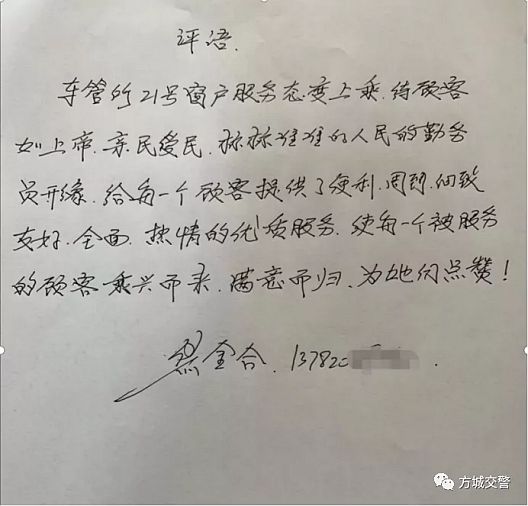 评语.
车管所21号窗户服务态度上乘.待顾客
如上帝.亲民爱民.标标准准的人民的勤务
员形象.给每一个顾客提供了便利.周到.细致
友好.全面.热情的优质服务.使每一个被服务
的顾客乘兴而来.满意而归.为她们点赞!
金合.137820
方城交警